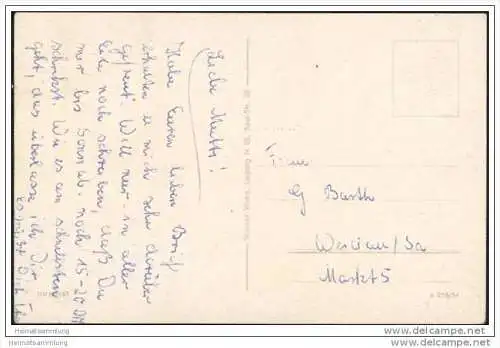 Liebe Mutti!
Habe Euren lieben Brief
erhalten u. mich sehr darüber
gefreut. Will nur - in aller
Eile noch schreiben, daß Du
mir bis Sonnab. noch 15-20 DM
schickst. Wie es am schnellsten
geht, das überlasse ich Dir.
Es grüßt Dich
Barth
Werdau/Sa
Markt 5
Heimatsammlung
Heimatsammlung